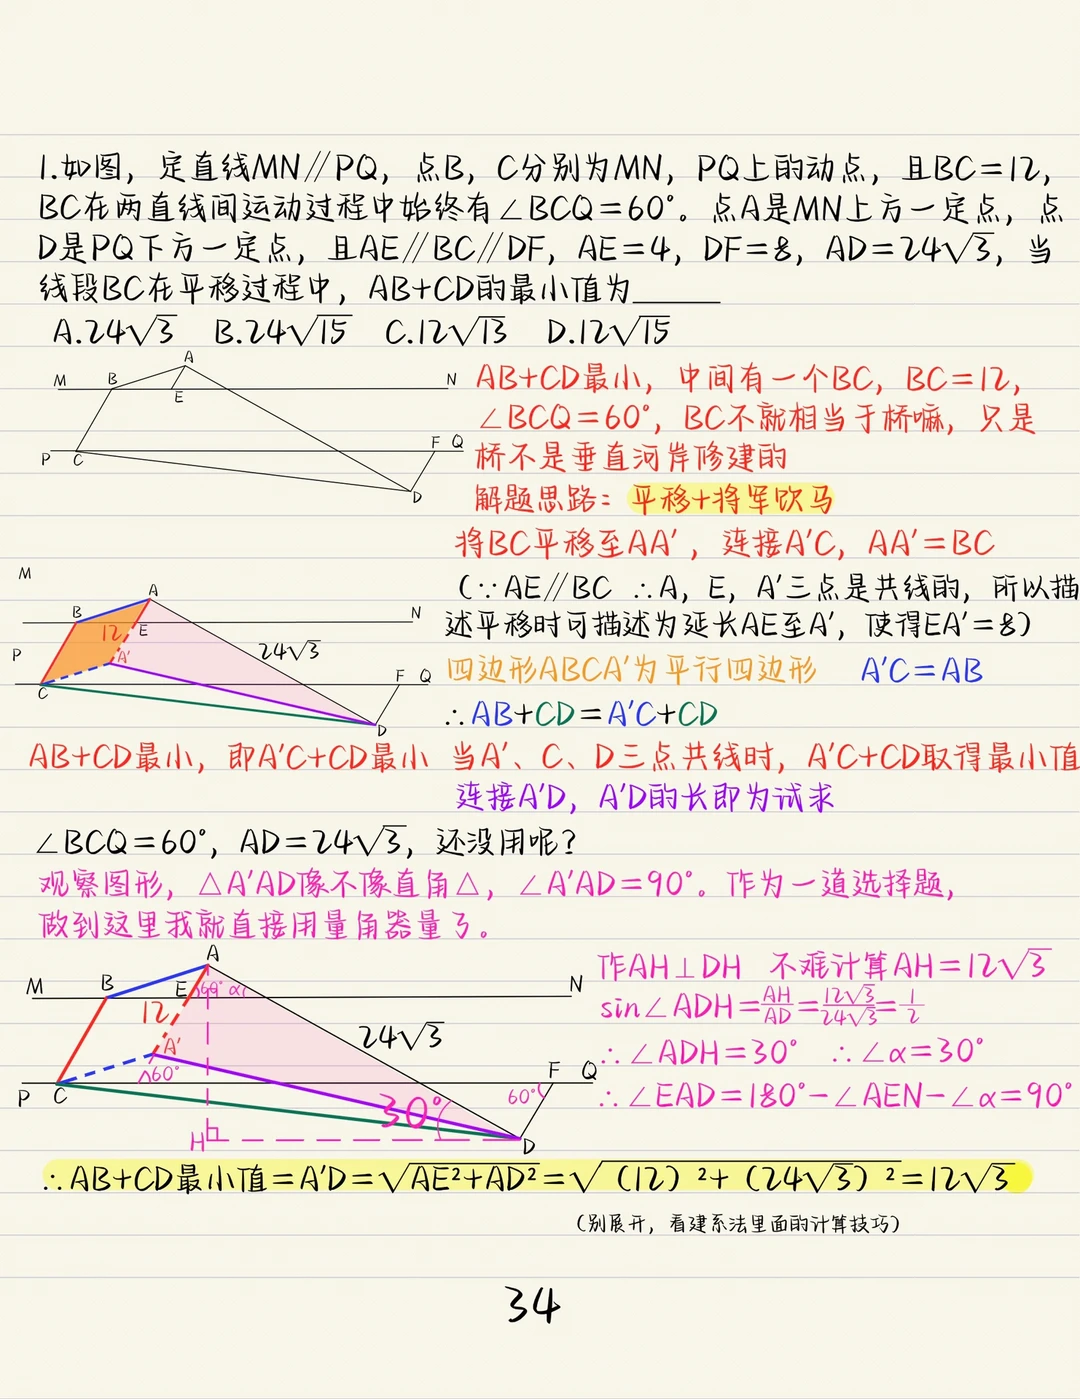 1.如图，定直线MN∥PQ，点B，C分别为MN，PQ上的动点，且BC=12，
BC在两直线间运动过程中始终有∠BCQ=60°。点A是MN上方一定点，点
D是PQ下方一定点，且AE∥BC∥DF，AE=4，DF=8，AD=24√3，当
线段BC在平移过程中，AB+CD的最小值为______
A.24√3 B.24√15 C.12√13 D.12√15
A
M B N
E
F Q
P C
D
AB+CD最小，中间有一个BC，BC=12，
∠BCQ=60°，BC不就相当于桥嘛，只是
桥不是垂直河岸修建的
解题思路：平移+将军饮马
将BC平移至AA′，连接A′C，AA′=BC
（∵AE∥BC ∴A，E，A′三点是共线的，所以描
述平移时可描述为延长AE至A′，使得EA′=8）
四边形ABCA′为平行四边形 A′C=AB
∴AB+CD=A′C+CD
M
A
B N
12 E
P A′ 24√3
F Q
C
D
AB+CD最小，即A′C+CD最小 当A′、C、D三点共线时，A′C+CD取得最小值
连接A′D，A′D的长即为试求
∠BCQ=60°，AD=24√3，还没用呢？
观察图形，△A′AD像不像直角△，∠A′AD=90°。作为一道选择题，
做到这里我就直接用量角器量了。
A
M B E 60° α N
12
A′ 24√3
60° F Q
P C 60°
30°
H D
作AH⊥DH 不难计算AH=12√3
sin∠ADH=AH/AD=12√3/24√3=1/2
∴∠ADH=30° ∴∠α=30°
∴∠EAD=180°-∠AEN-∠α=90°
∴AB+CD最小值=A′D=√AE²+AD²=√（12）²+（24√3）²=12√3
（别展开，看建系法里面的计算技巧）
34